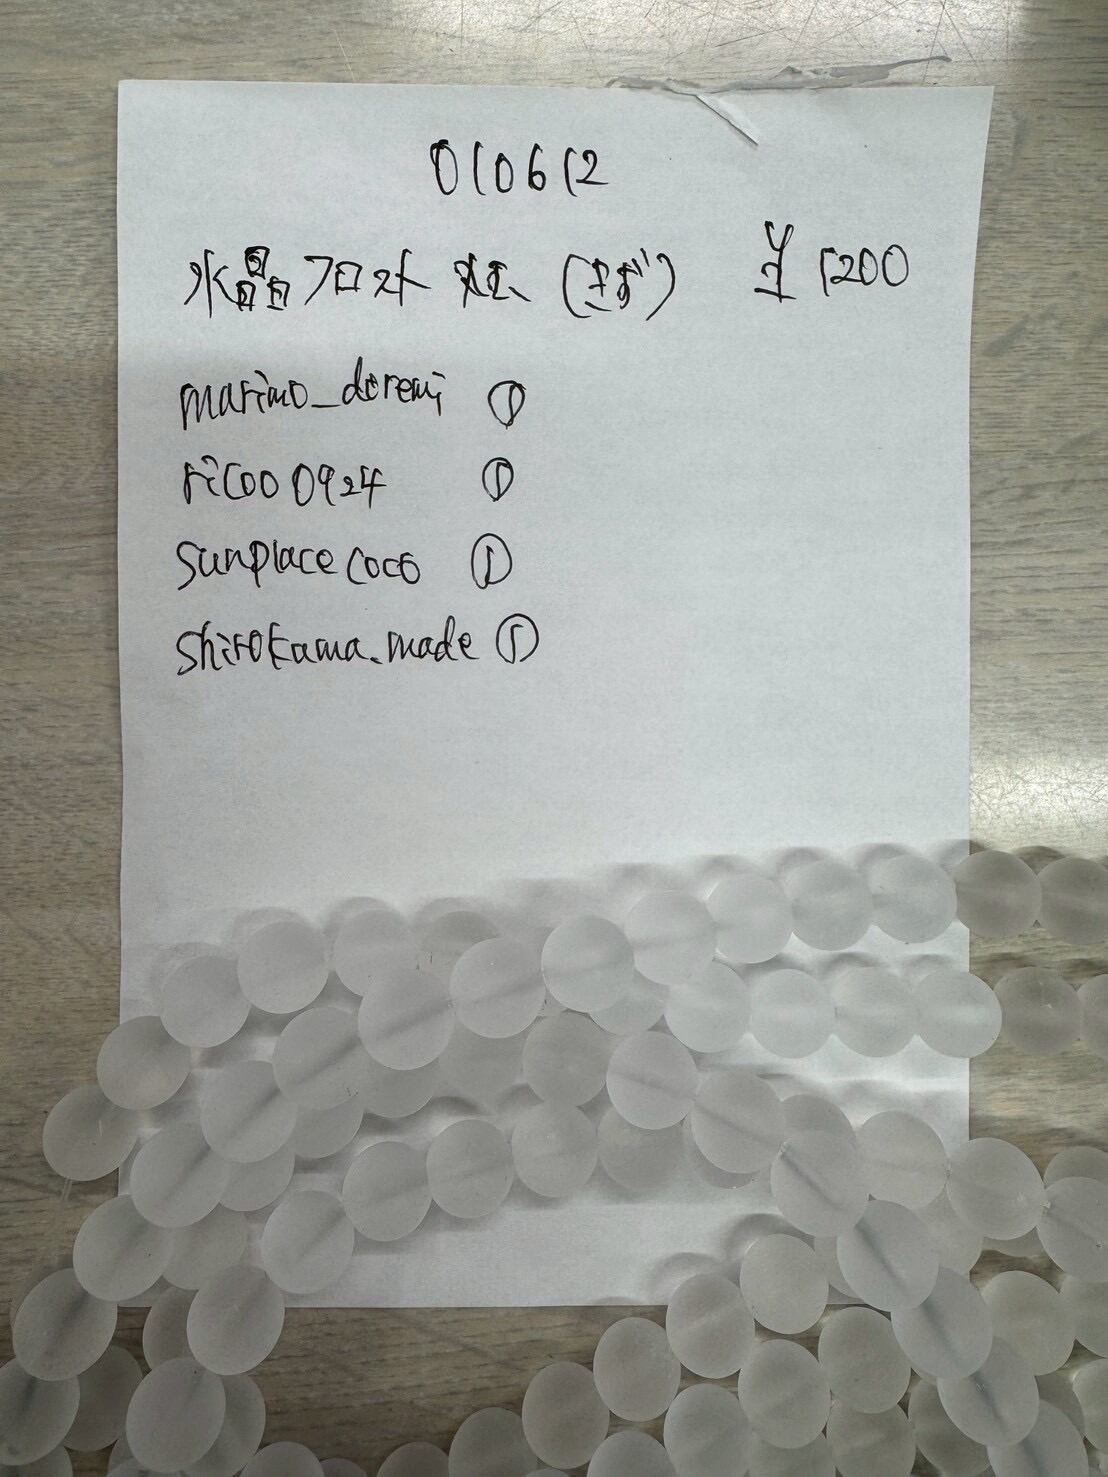 010612
水晶フロスト 粒 (さざ) ¥1200
marimo_doremi ①
ricoo0924 ①
sunplacecoco ①
shirokuma.made ①